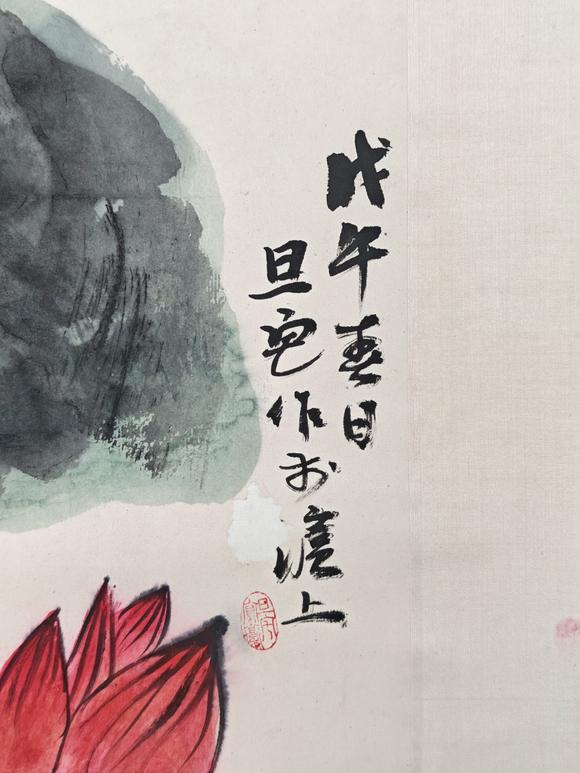 戊午春日
旦作於滬上